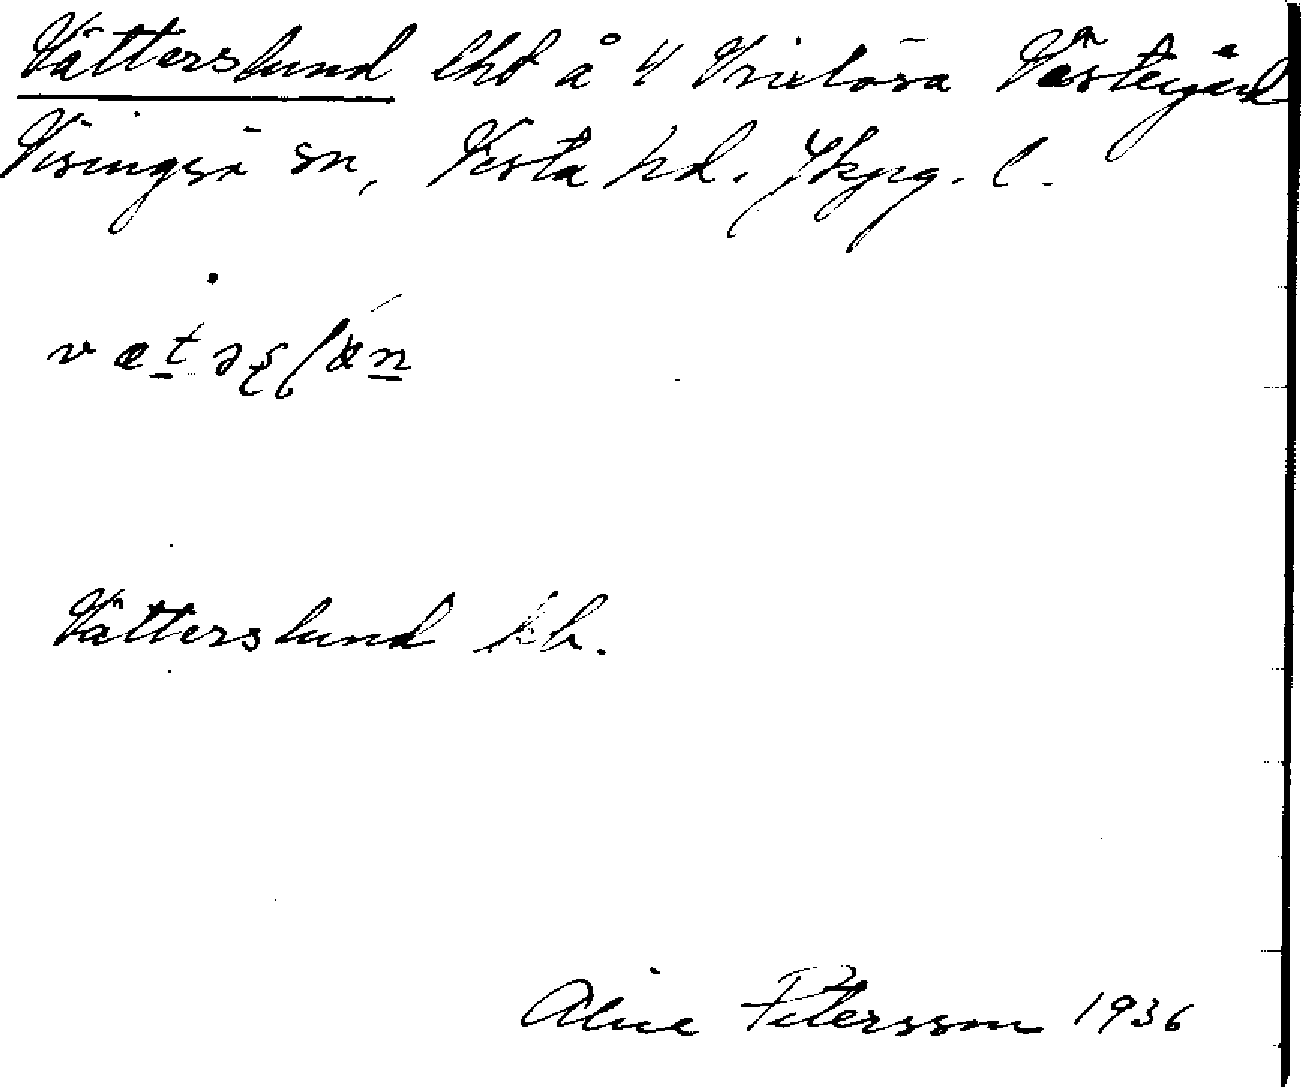 Vätterslund lht å 4 Vretlösa Västergård
Visingsö sn, Vista hd. Jkpg. l.
Vätterslund kh.
Alice Petersson 1936